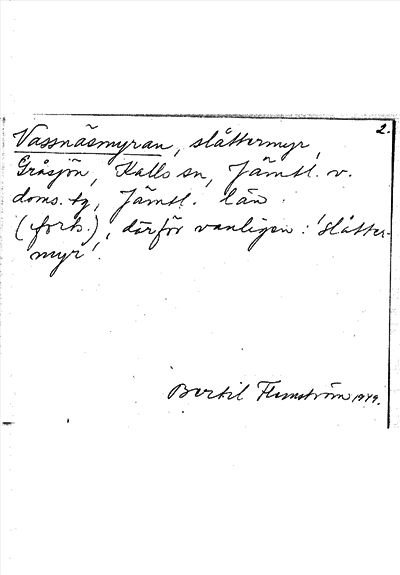 2.
Vassnäsmyran, slåttermyr,
Gråsjön, Kalls sn, Jämtl. v.
doms. tg, Jämtl. län.
(forts.), därför vanligen: 'slåtter-
myr'.
Bertil Flemström 1949.